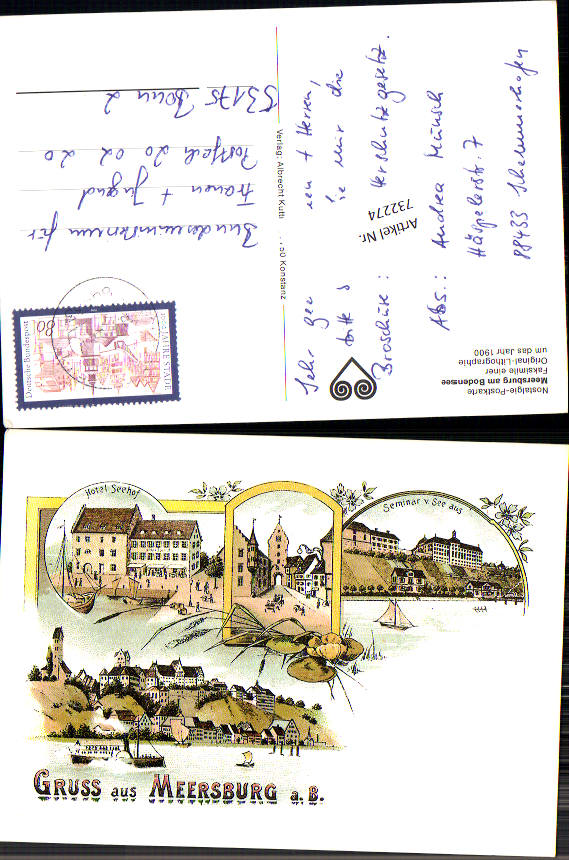 Nostalgie-Postkarte
Meersburg am Bodensee
Faksimile einer
Original-Lithographie
um das Jahr 1900
Sehr gee
nen + Herren,
bitte s
ie mir die
Broschüre:
terschutzgesetz.
Abs.: Andrea Münsch
88433 Schemmerhofen
Artikel Nr.
732274
Verlag: Albrecht Kuth
50 Konstanz
Deutsche Bundespost
80
JAHRE STADE
Bundesministerium für
Frauen + Jugend
Postfach 20 02 20
53175 Bonn 2
Hotel Seehof
Seminar v. See aus
GRUSS aus MEERSBURG a. B.